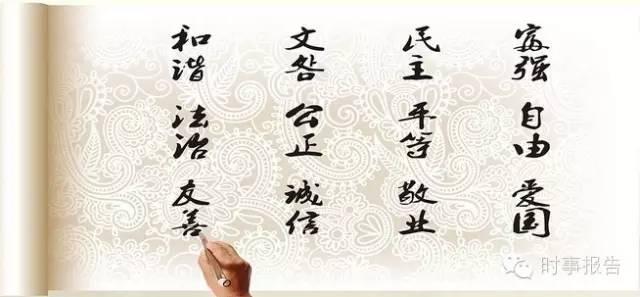 富强
民主
文明
和谐
自由
平等
公正
法治
爱国
敬业
诚信
友善
时事报告